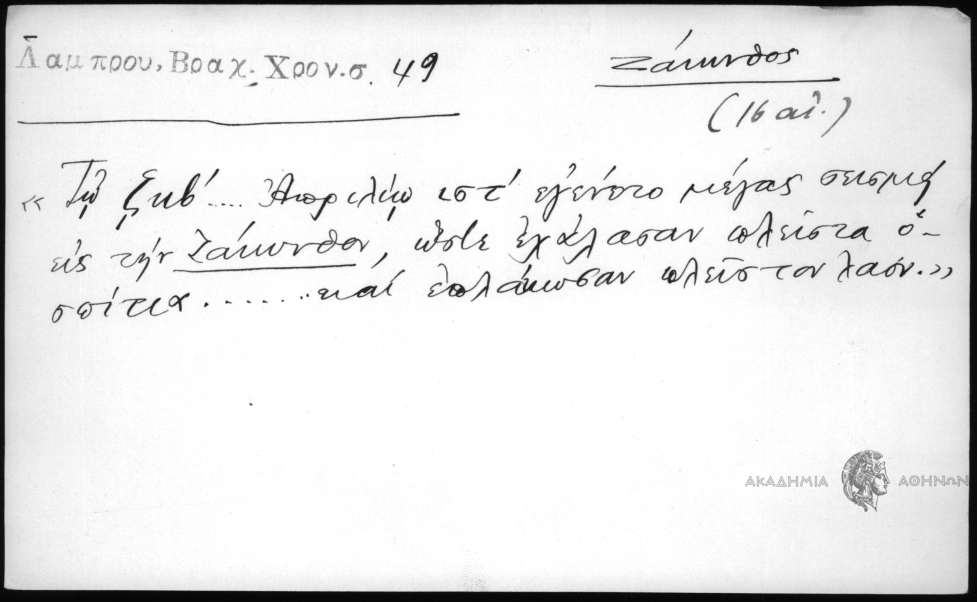 Λαμπρου, Βραχ. Χρον. σ. 49
Ζάκυνθος
(16 αἰ.)
«Τῷ ζκβ´.... Ἀπριλίῳ ιστ´ ἐγένετο μέγας σεισμὸς
εἰς τὴν Ζάκυνθον, ὥστε ἐχάλασαν πλεῖστα ὁ-
σπίτια ........ καὶ ἐπλάκωσαν πλεῖστον λαόν.»
ΑΚΑΔΗΜΙΑ ΑΘΗΝΩΝ